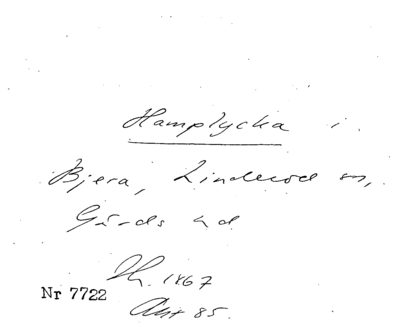 Hamplycka i
Bjera, Linderöd sn,
Gärds hd.
Th. 1867
Nr 7722
Akt 85.